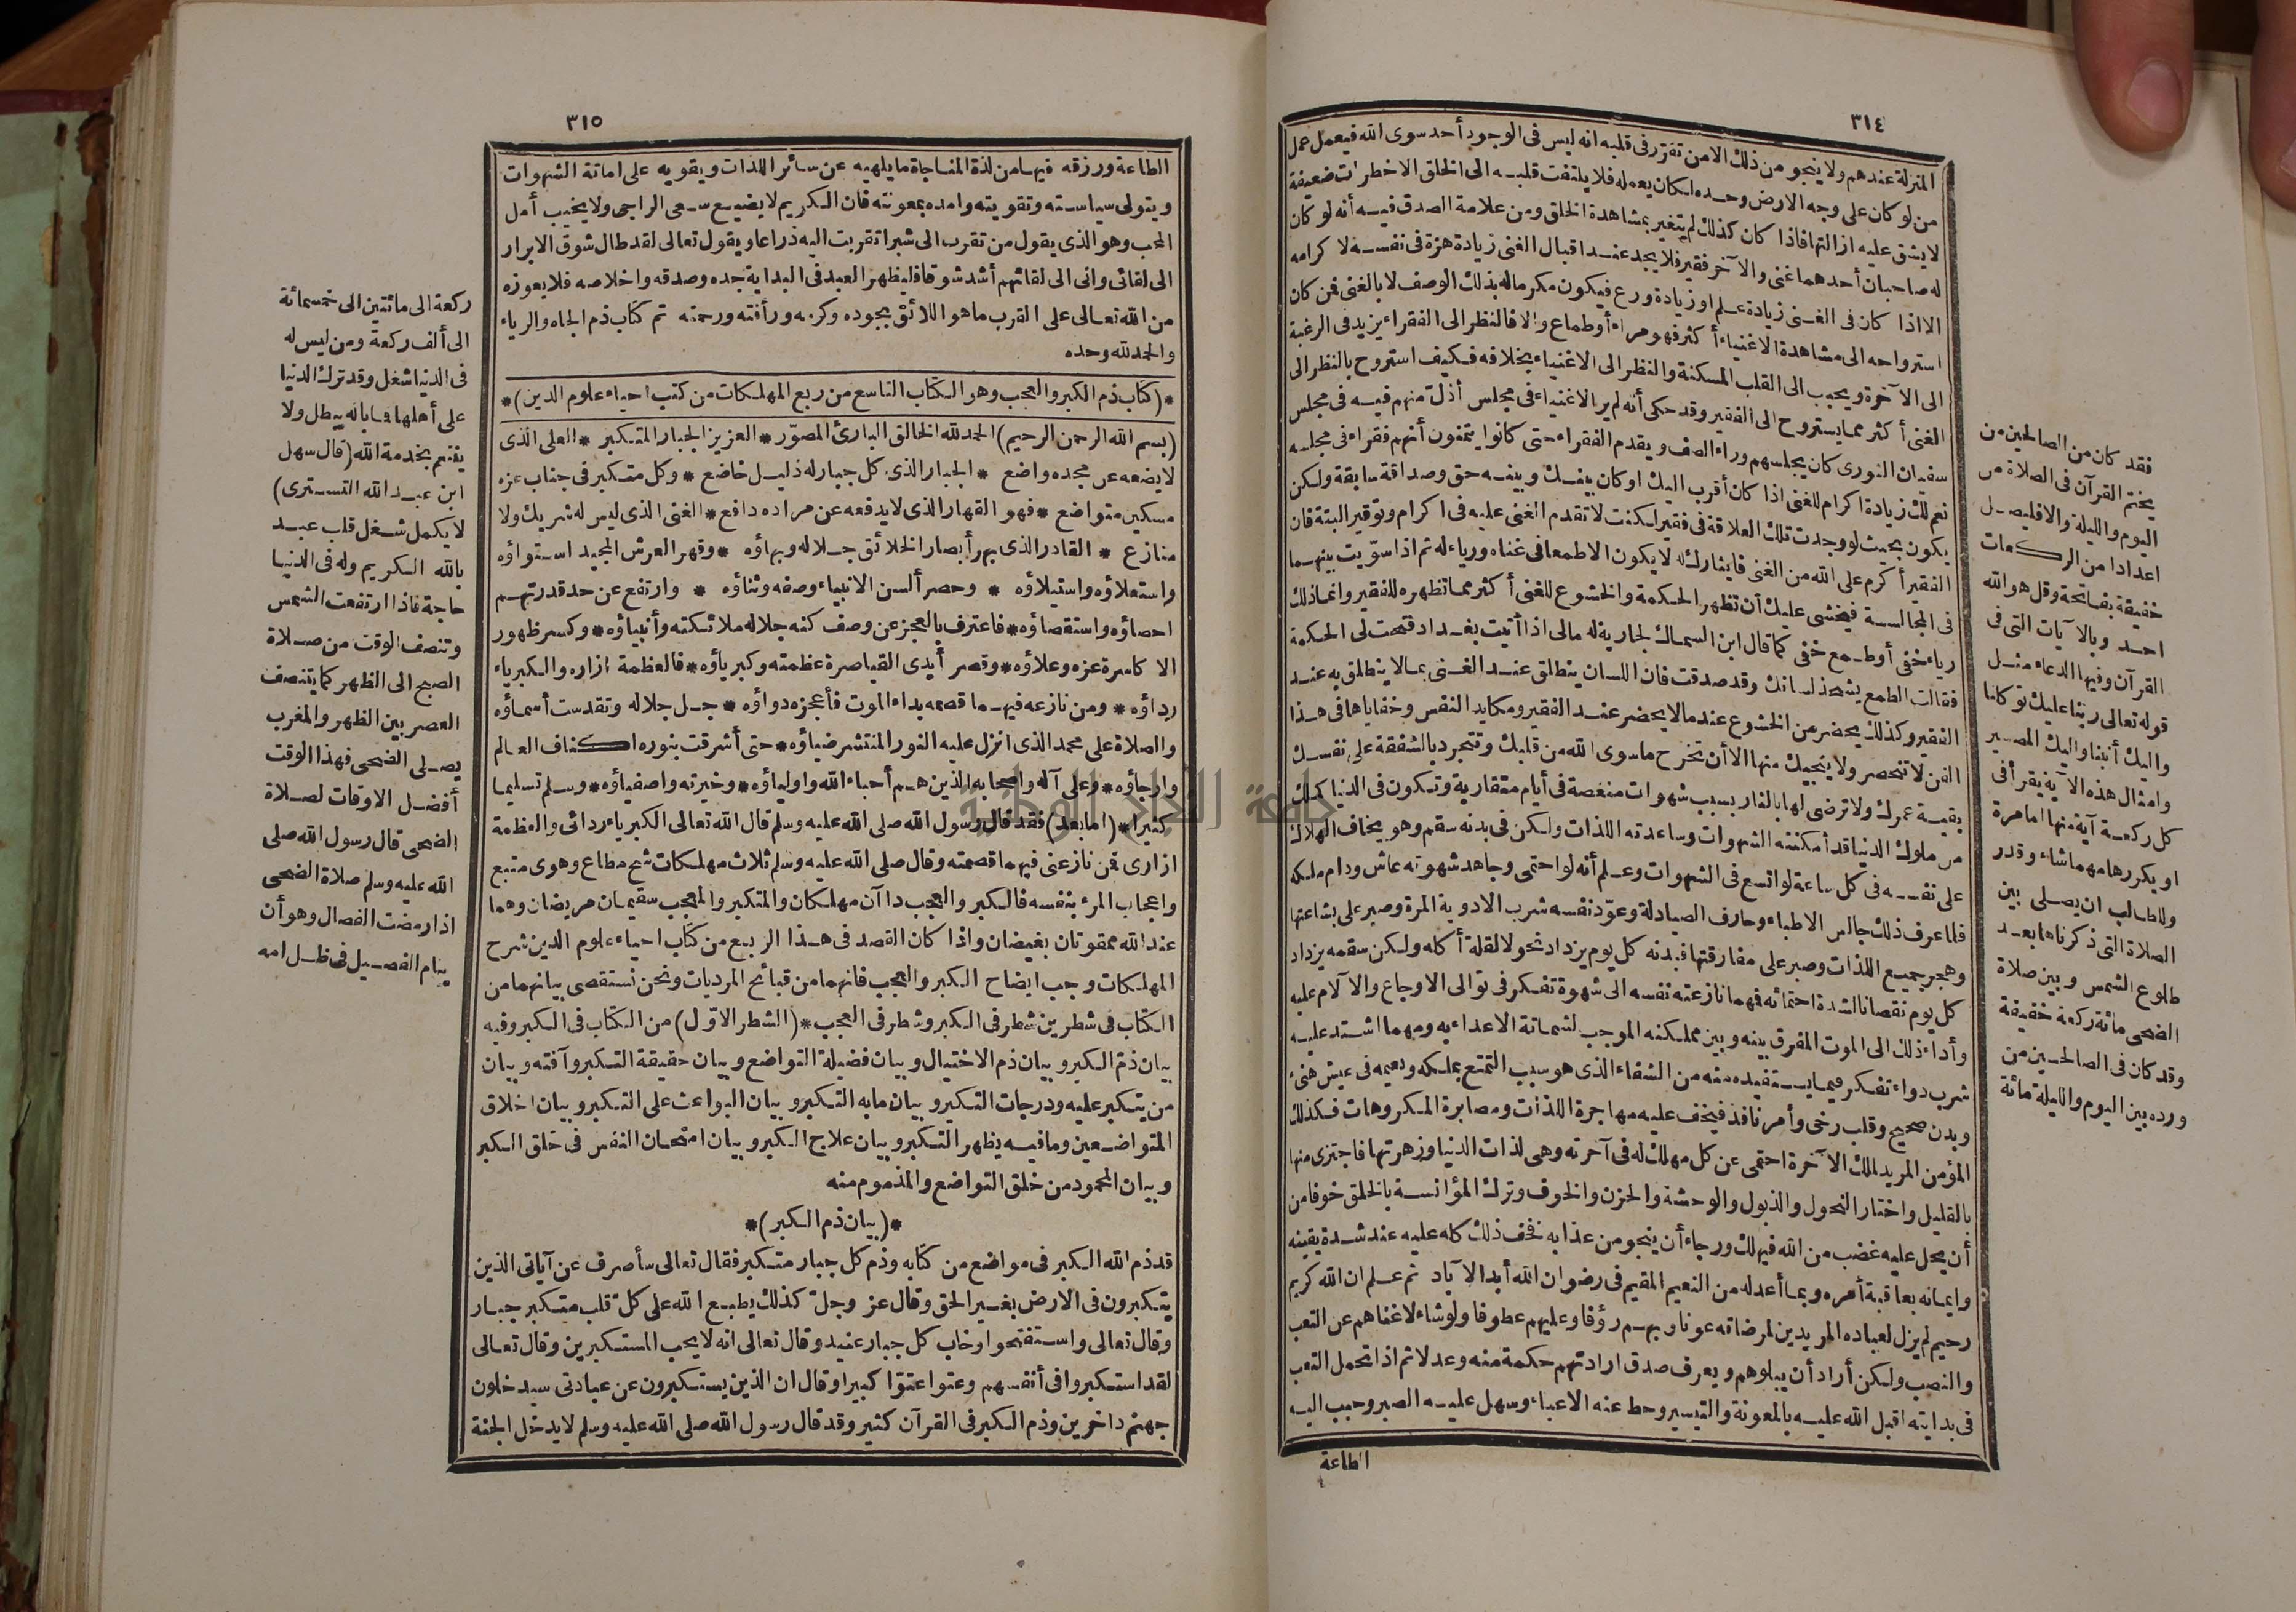 ٣١٤
المنزلة عندهم ولا ينجو من ذلك الا من تقرر فى قلبه انه ليس فى الوجود أحد سوى الله فيعمل عمل
من لو كان على وجه الارض وحده لكان يعمله فلا يلتفت قلبه الى الخلق الا خطرات ضعيفة
لا يشق عليه ازالتها فاذا كان كذلك لم يتغير بمشاهدة الخلق ومن علامة الصدق فيه أنه لو كان
له صاحبان أحدهما غنى والآخر فقير فلا يجد عند اقبال الغنى زيادة هزة فى نفسه لا كرامه
الا اذا كان فى الغنى زيادة علم او زيادة ورع فيكون مكرما له بذلك الوصف لا بالغنى فمن كان
استرواحه الى مشاهدة الاغنياء أكثر فهو مراء أو طماع والا فالنظر الى الفقراء يزيد فى الرغبة
الى الآخرة ويحبب الى القلب المسكنة والنظر الى الاغنياء بخلافه فكيف استروح بالنظر الى
الغنى أكثر مما يستروح الى الفقير وقد حكى أنه لم ير الاغنياء فى مجلس أذل منهم فيه فى مجلس
سفيان الثورى كان يجلسهم وراء الصف ويقدم الفقراء حتى كانوا يتمنون أنهم فقراء فى مجلسه
نعم لك زيادة اكرام للغنى اذا كان أقرب اليك او كان بينك وبينه حق وصداقة سابقة ولكن
يكون بحيث لو وجدت تلك العلاقة فى فقير لكنت لا تقدم الغنى عليه فى اكرام وتوقير البتة فان
الفقير أكرم على الله من الغنى فايثارك له لا يكون الا طمعا فى غناه ورياء له ثم اذا سوّيت بينهما
فى المجالسة فيخشى عليك أن تظهر الحكمة والخشوع للغنى أكثر مما تظهره للفقير وانما ذلك
رياء خفى أو طمع خفى كما قال ابن السماك لجارية له مالى اذا أتيت بغداد فتحت لى الحكمة
فقالت الطمع يشحذ لسانك وقد صدقت فان اللسان ينطلق عند الغنى بما لا ينطلق به عند
الفقير وكذلك يحضر من الخشوع عنده ما لا يحضر عند الفقير ومكايد النفس وخفاياها فى هذا
الفن لا تنحصر ولا ينجيك منها الا أن تخرج ما سوى الله من قلبك وتتجرد بالشفقة على نفسك
بقية عمرك ولا ترضى لها بالنار بسبب شهوات منغصة فى أيام متقاربة وتكون فى الدنيا كملك
من ملوك الدنيا قد أمكنته الشهوات وساعدته اللذات ولكن فى بدنه سقم وهو يخاف الهلاك
على نفسه فى كل ساعة لو اتسع فى الشهوات وعلم أنه لو احتمى وجاهد شهوته عاش ودام ملكه
فلما عرف ذلك جالس الاطباء وحارف الصيادلة وعوّد نفسه شرب الادوية المرة وصبر على بشاعتها
وهجر جميع اللذات وصبر على مفارقتها فبدنه كل يوم يزداد نحولا لقلة أكله ولكن سقمه يزداد
كل يوم نقصانا لشدة احتمائه فمهما نازعته نفسه الى شهوة تفكر فى توالى الاوجاع والآلام عليه
وأداء ذلك الى الموت المفرق بينه وبين مملكته الموجب لشماتة الاعداء به ومهما اشتد عليه
شرب دواء تفكر فيما يستفيده منه من الشفاء الذى هو سبب التمتع بملكه ونعيمه فى عيش هنئ
وبدن صحيح وقلب رخى وأمر نافذ فيخف عليه مهاجرة اللذات ومصابرة المكروهات فكذلك
المؤمن المريد لملك الآخرة احتمى عن كل مهلك له فى آخرته وهى لذات الدنيا وزهرتها فاجتزى منها
بالقليل واختار النحول والذبول والوحشة والحزن والخوف وترك المؤانسة بالخلق خوفا من
أن يحل عليه غضب من الله فيهلك ورجاء أن ينجو من عذابه فخف ذلك كله عليه عند شدة يقينه
وايمانه بعاقبة أمره وبما أعد له من النعيم المقيم فى رضوان الله أبد الآباد ثم علم ان الله كريم
رحيم لم يزل لعباده المريدين لمرضاته عونا وبهم رؤفا وعليهم عطوفا ولو شاء لاغناهم عن التعب
والنصب ولكن أراد أن يبلوهم ويعرف صدق ارادتهم حكمة منه وعدلا ثم اذا تحمل التعب
فى بدايته اقبل الله عليه بالمعونة والتيسير وحط عنه الاعباء وسهل عليه الصبر وحبب اليه
الطاعة
فقد كان من الصالحين من
يختم القرآن فى الصلاة من
اليوم والليلة والا فليصل
اعدادا من الركعات
خفيفة بفاتحة وقل هو الله
احد وبالآيات التى فى
القرآن وفيها الدعاء مثل
قوله تعالى ربنا عليك توكلنا
واليك أنبنا واليك المصير
وامثال هذه الآية فيقرأ فى
كل ركعة آية منها اما مرة
او يكررها مهما شاء وقدر
وللطالب ان يصلى بين
الصلاة التى ذكرناها بعد
طلوع الشمس وبين صلاة
الضحى مائة ركعة خفيفة
وقد كان فى الصالحين من
ورده بين اليوم والليلة مائة
٣١٥
الطاعة ورزقه فيها من لذة المناجاة ما يلهيه عن سائر اللذات ويقويه على اماتة الشهوات
ويتولى سياسته وتقويته وامده بمعونته فان الكريم لا يضيع سعى الراجى ولا يخيب أمل
المحب وهو الذى يقول من تقرب الى شبرا تقربت اليه ذراعا ويقول تعالى لقد طال شوق الابرار
الى لقائى وانى الى لقائهم أشد شوقا فليظهر العبد فى البداية جده وصدقه واخلاصه فلا يعوزه
من الله تعالى على القرب ما هو اللائق بجوده وكرمه ورأفته ورحمته تم كتاب ذم الجاه والرياء
والحمد لله وحده
*(كتاب ذم الكبر والعجب وهو الكتاب التاسع من ربع المهلكات من كتب احياء علوم الدين)*
(بسم الله الرحمن الرحيم) الحمد لله الخالق البارئ المصوّر * العزيز الجبار المتكبر * العلى الذى
لا يضعه عن مجده واضع * الجبار الذى كل جبار له ذليل خاضع * وكل متكبر فى جناب عزه
مسكين متواضع * فهو القهار الذى لا يدفعه عن مراده دافع * الغنى الذى ليس له شريك ولا
منازع * القادر الذى بهر أبصار الخلائق جلاله وبهاؤه * وقهر العرش المجيد استواؤه
واستعلاؤه واستيلاؤه * وحصر ألسن الانبياء وصفه وثناؤه * وارتفع عن حد قدرتهم
احصاؤه واستقصاؤه * فاعترف بالعجز عن وصف كنه جلاله ملائكته وأنبياؤه * وكسر ظهور
الاكاسرة عزه وعلاؤه * وقصر أيدى القياصرة عظمته وكبرياؤه * فالعظمة ازاره والكبرياء
رداؤه * ومن نازعه فيهما قصمه بداء الموت فأعجزه دواؤه * جل جلاله وتقدست أسماؤه
والصلاة على محمد الذى انزل عليه النور المنتشر ضياؤه * حتى أشرقت بنوره اكناف العالم
وارجاؤه * وعلى آله واصحابه الذين هم أحباء الله واولياؤه * وخيرته واصفياؤه * وسلم تسليما
كثيرا * (اما بعد) فقد قال رسول الله صلى الله عليه وسلم قال الله تعالى الكبرياء ردائى والعظمة
ازارى فمن نازعنى فيهما قصمته وقال صلى الله عليه وسلم ثلاث مهلكات شح مطاع وهوى متبع
واعجاب المرء بنفسه فالكبر والعجب داآن مهلكان والمتكبر والمعجب سقيمان مريضان وهما
عند الله ممقوتان بغيضان واذا كان القصد فى هذا الربع من كتاب احياء علوم الدين شرح
المهلكات وجب ايضاح الكبر والعجب فانهما من قبائح المرديات ونحن نستقصى بيانهما من
الكتاب فى شطرين شطر فى الكبر وشطر فى العجب * (الشطر الاوّل) من الكتاب فى الكبر وفيه
بيان ذم الكبر وبيان ذم الاختيال وبيان فضيلة التواضع وبيان حقيقة التكبر وآفته وبيان
من يتكبر عليه ودرجات التكبر وبيان ما به التكبر وبيان البواعث على التكبر وبيان اخلاق
المتواضعين وما فيه يظهر التكبر وبيان علاج الكبر وبيان امتحان النفس فى خلق الكبر
وبيان المحمود من خلق التواضع والمذموم منه
*(بيان ذم الكبر)*
قد ذم الله الكبر فى مواضع من كتابه وذم كل جبار متكبر فقال تعالى سأصرف عن آياتى الذين
يتكبرون فى الارض بغير الحق وقال عز وجل كذلك يطبع الله على كل قلب متكبر جبار
وقال تعالى واستفتحوا وخاب كل جبار عنيد وقال تعالى انه لا يحب المستكبرين وقال تعالى
لقد استكبروا فى أنفسهم وعتوا عتوّا كبيرا وقال ان الذين يستكبرون عن عبادتى سيدخلون
جهنم داخرين وذم الكبر فى القرآن كثير وقد قال رسول الله صلى الله عليه وسلم لا يدخل الجنة
ركعة الى مائتين الى خمسمائة
الى ألف ركعة ومن ليس له
فى الدنيا شغل وقد ترك الدنيا
على أهلها فما باله يبطل ولا
يتنعم بخدمة الله (قال سهل
ابن عبد الله التسترى)
لا يكمل شغل قلب عبد
بالله الكريم وله فى الدنيا
حاجة فاذا ارتفعت الشمس
وتنصف الوقت من صلاة
الصبح الى الظهر كما يتنصف
العصر بين الظهر والمغرب
يصلى الضحى فهذا الوقت
أفضل الاوقات لصلاة
الضحى قال رسول الله صلى
الله عليه وسلم صلاة الضحى
اذا رمضت الفصال وهو أن
ينام الفصيل فى ظل امه